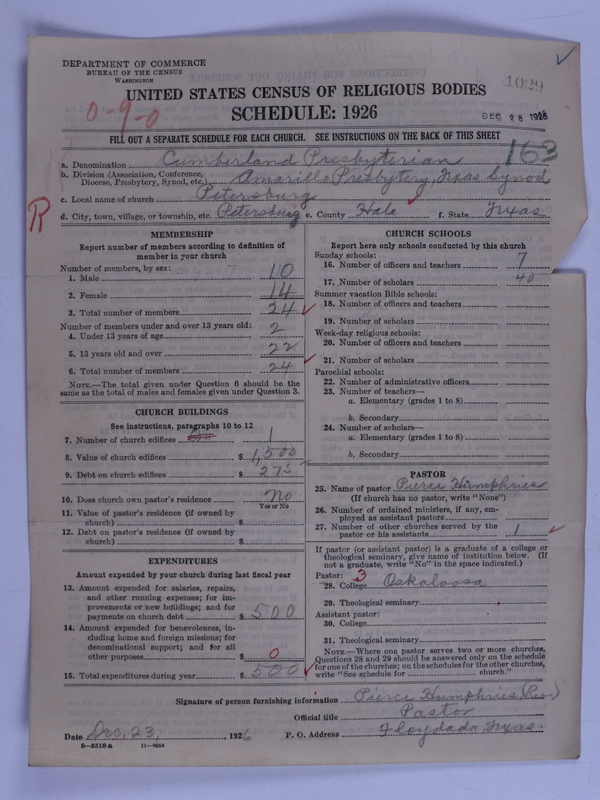 DEPARTMENT OF COMMERCE
BUREAU OF THE CENSUS
WASHINGTON
1029
UNITED STATES CENSUS OF RELIGIOUS BODIES
SCHEDULE: 1926
DEC 28 1926
0-9-0
FILL OUT A SEPARATE SCHEDULE FOR EACH CHURCH. SEE INSTRUCTIONS ON THE BACK OF THIS SHEET
163
a. Denomination Cumberland Presbyterian
b. Division (Association, Conference, Diocese, Presbytery, Synod, etc.) Amarillo Presbytery, Texas Synod
c. Local name of church Petersburg
R
d. City, town, village, or township, etc. Petersburg e. County Hale f. State Texas
MEMBERSHIP
Report number of members according to definition of
member in your church
Number of members, by sex:
1. Male 10
2. Female 14
3. Total number of members 24
Number of members under and over 13 years old:
4. Under 13 years of age 2
5. 13 years old and over 22
6. Total number of members 24
NOTE.—The total given under Question 6 should be
same as the total of males and females given under Question 3.
CHURCH BUILDINGS
See instructions, paragraphs 10 to 12
7. Number of church edifices 1
8. Value of church edifices $ 1,500
9. Debt on church edifices $ 275
10. Does church own pastor's residence No
Yes or No
11. Value of pastor's residence (if owned by
church) $
12. Debt on pastor's residence (if owned by
church) $
EXPENDITURES
Amount expended by your church during last fiscal year
13. Amount expended for salaries, repairs,
and other running expenses; for im-
provements or new buildings; and for
payments on church debt $ 500
14. Amount expended for benevolences, in-
cluding home and foreign missions; for
denominational support; and for all
other purposes $ 0
15. Total expenditures during year $ 500
CHURCH SCHOOLS
Report here only schools conducted by this church
Sunday schools:
16. Number of officers and teachers 7
17. Number of scholars 40
Summer vacation Bible schools:
18. Number of officers and teachers
19. Number of scholars
Week-day religious schools:
20. Number of officers and teachers
21. Number of scholars
Parochial schools:
22. Number of administrative officers
23. Number of teachers—
a. Elementary (grades 1 to 8)
b. Secondary
24. Number of scholars—
a. Elementary (grades 1 to 8)
b. Secondary
PASTOR
25. Name of pastor Pierce Humphries
(If church has no pastor, write "None")
26. Number of ordained ministers, if any, em-
ployed as assistant pastors
27. Number of other churches served by the
pastor or his assistants 1
If pastor (or assistant pastor) is a graduate of a college or
theological seminary, give name of institution below. (If
not a graduate, write "No" in the space indicated.)
Pastor: 3
28. College Oskaloosa
29. Theological seminary
Assistant pastor:
30. College
31. Theological seminary
NOTE.—Where one pastor serves two or more churches,
Questions 28 and 29 should be answered only on the schedule
for one of the churches; on the schedules for the other churches,
write "See schedule for church."
Signature of person furnishing information Pierce Humphries (Rev.)
Official title Pastor
Date Dec. 23, 1926 P. O. Address Floydada, Texas
8—5518a 11—9664